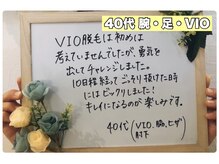 40代 腕・足・VIO
VIO脱毛は初めは
考えていませんでしたが、勇気を
出してチャレンジしました。
10日程経ってごっそり抜けた時
にはビックリしました!
キレイになるのが楽しみです。
40代(VIO、腕、ヒザ
肘下)